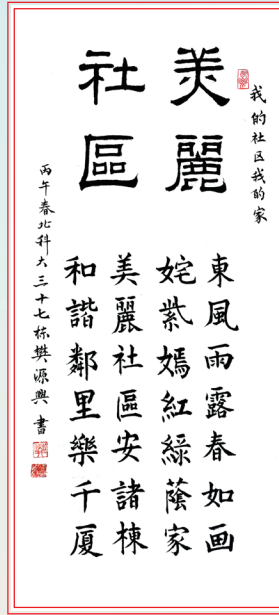 我的社区我的家
美麗
社區
東風雨露春如画
姹紫嫣紅綠蔭家
美麗社區安諸棟
和諧鄰里樂千厦
丙午春北科大三十七栋樊源興書